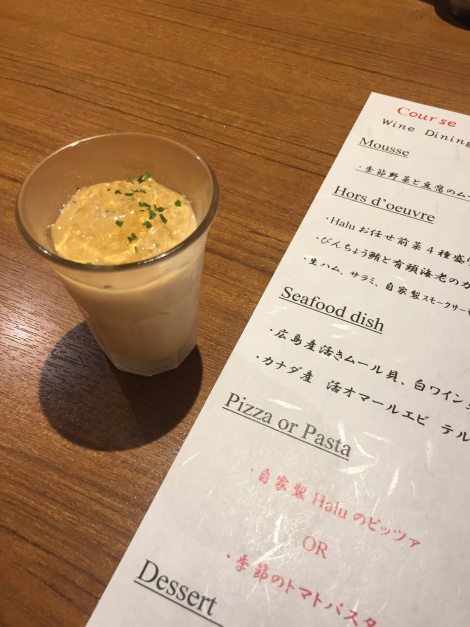 Course
Wine Dining
Mousse
・季節野菜と豆腐のム
Hors d'oeuvre
・Haluお任せ前菜4種盛り
・びんちょう鮪と有頭海老のカ
・生ハム、サラミ、自家製スモークサーモ
Seafood dish
・広島産活きムール貝、白ワイン
・カナダ産 活オマールエビ テル
Pizza or Pasta
・自家製Haluのピッツァ
OR
・季節のトマトパスタ
Dessert